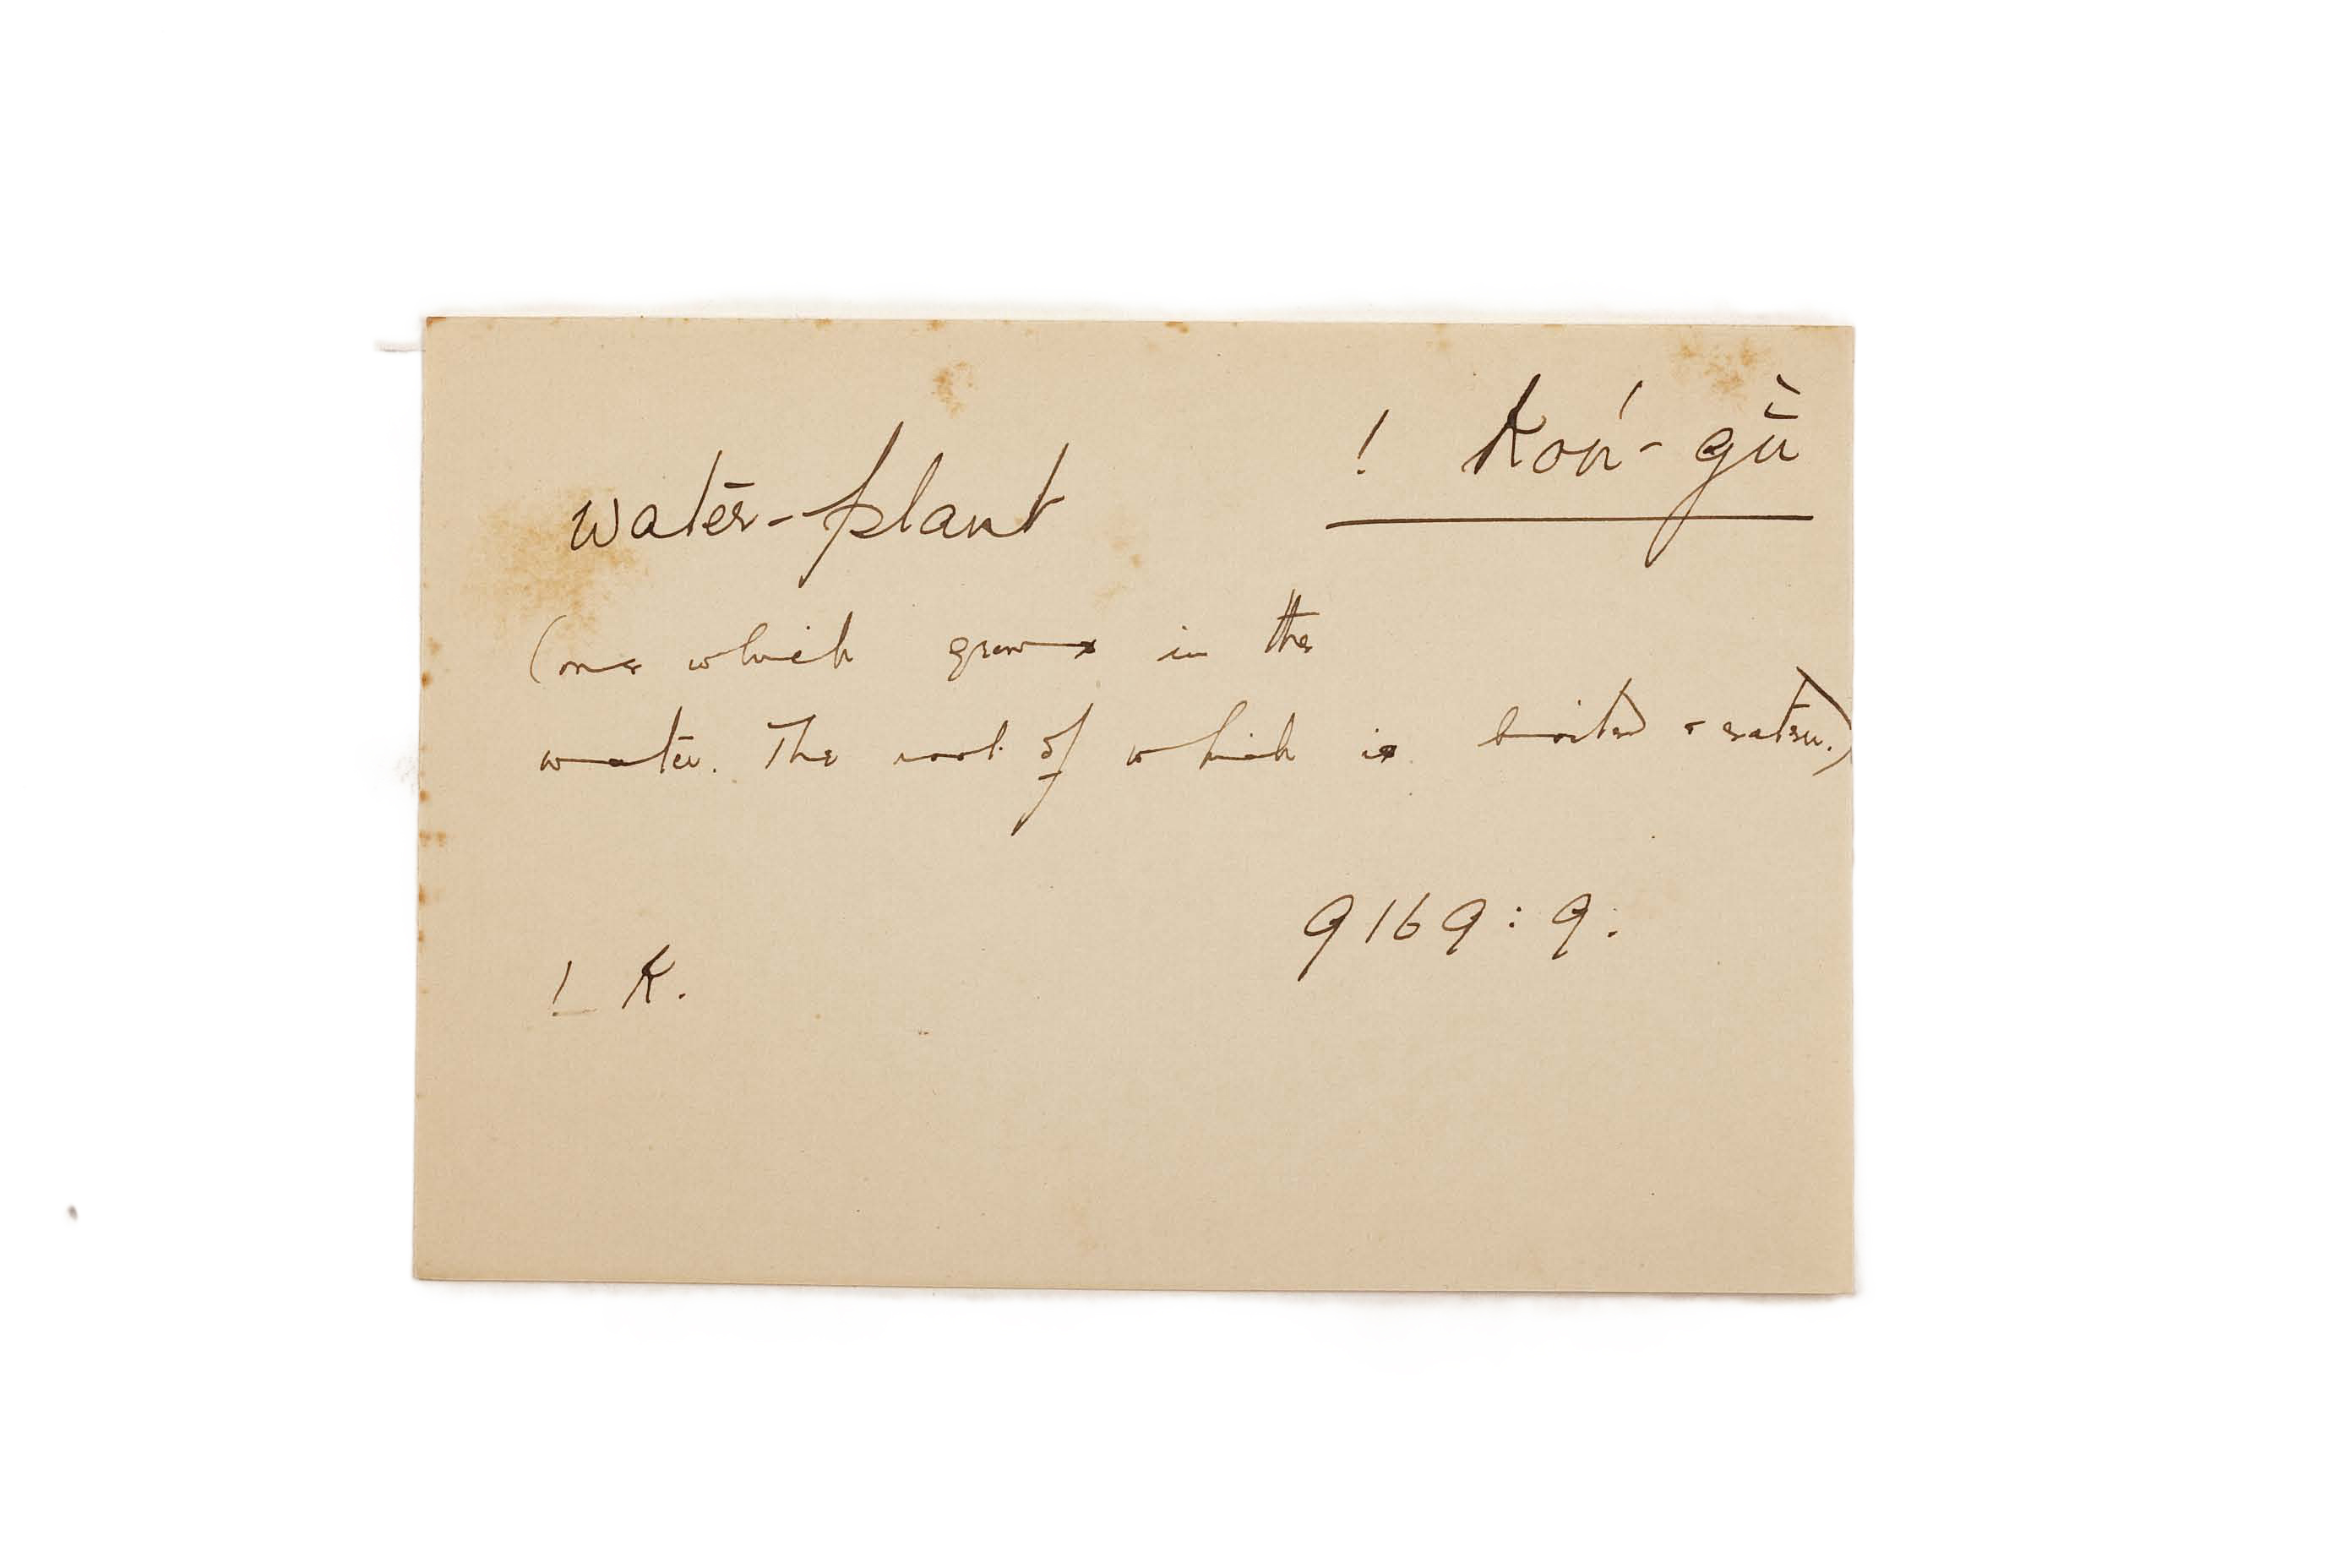 ! Koń-gǜ
water-plant
(one which grows in the
water. The root of which is boiled & eaten.)
9169:9.
! K.